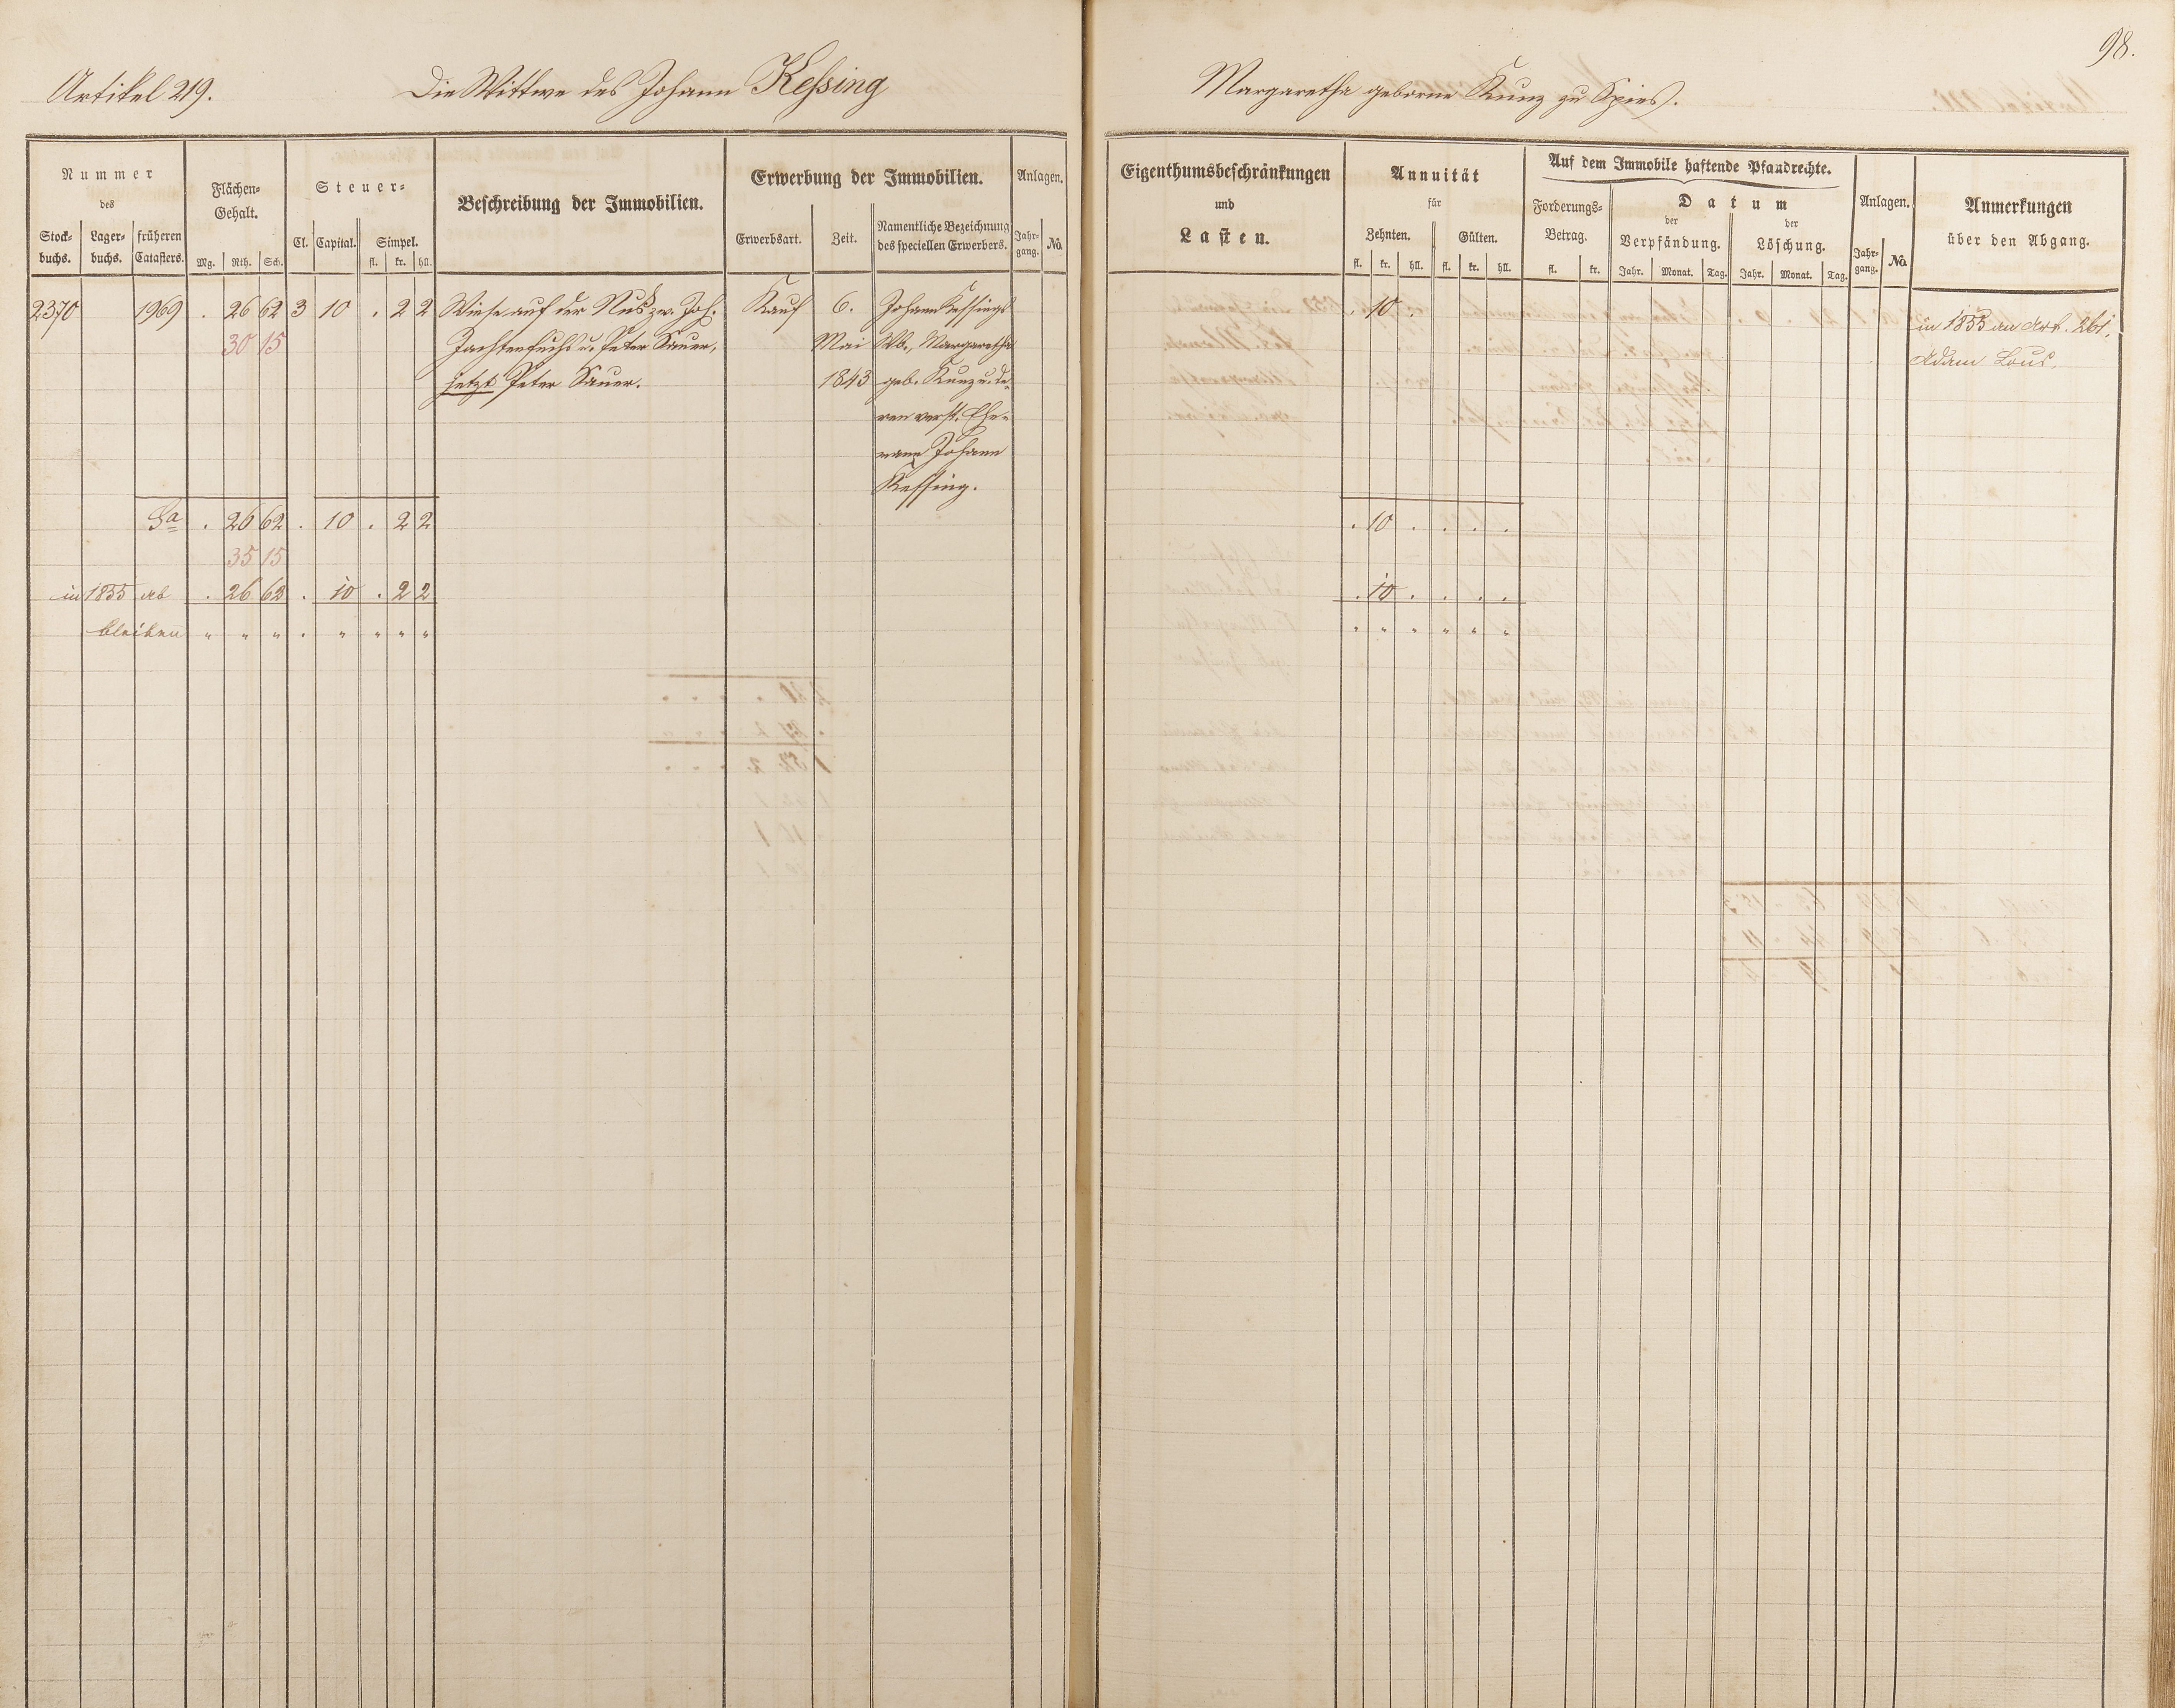 98.
Artikel 219. Die Wittwe des Johann Keßing Margaretha geborne Kunz zu Spies.
Nummer
des
Stock-
buchs.
Lager-
buchs.
früheren
Catasters.
Flächen-
Gehalt.
Mg. Rth. Sch.
Steuer-
Cl. Capital. Simpel.
fl. kr. hll.
Beschreibung der Immobilien.
Erwerbung der Immobilien.
Erwerbsart. Zeit.
Namentliche Bezeichnung
des speciellen Erwerbers.
Anlagen.
Jahr-
gang. No.
Eigenthumsbeschränkungen
und
Lasten.
Annuität
für
Zehnten. Gülten.
fl. kr. hll. fl. kr. hll.
Auf dem Immobile haftende Pfandrechte.
Forderungs-
Betrag.
fl. kr.
Datum
der
Verpfändung.
der
Löschung.
Jahr. Monat. Tag. Jahr. Monat. Tag.
Anlagen.
Jahr-
gang. No.
Anmerkungen
über den Abgang.
2370 1969 . 26 62 3 10 . 2 2 Wiese auf der Nus zw. Joh. Kauf 6. Johann Kessings . 10 . in 1855 an Art. 261,
30 15 u. Peter Sauer, Mai Wb., Margaretha Adam
jetzt Peter Sauer. 1843 geb. Kunz u. de-
ren verst. Ehe-
mann Johann
Kessing.
Sa . 26 62 . 10 . 2 2 . 10 . . . .
35 15
in 1855 ab . 26 62 . 10 . 2 2 . 10 . . . .
bleiben " " " . " " " " " " " " " "